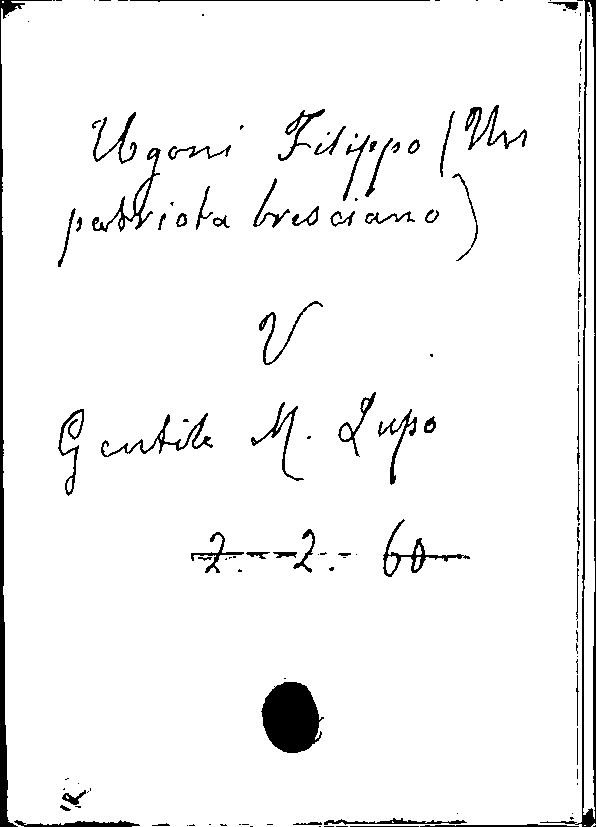 Ugoni Filippo (Un
patriota bresciano)
V
Gentile M. Lupo
2. - 2. - 60